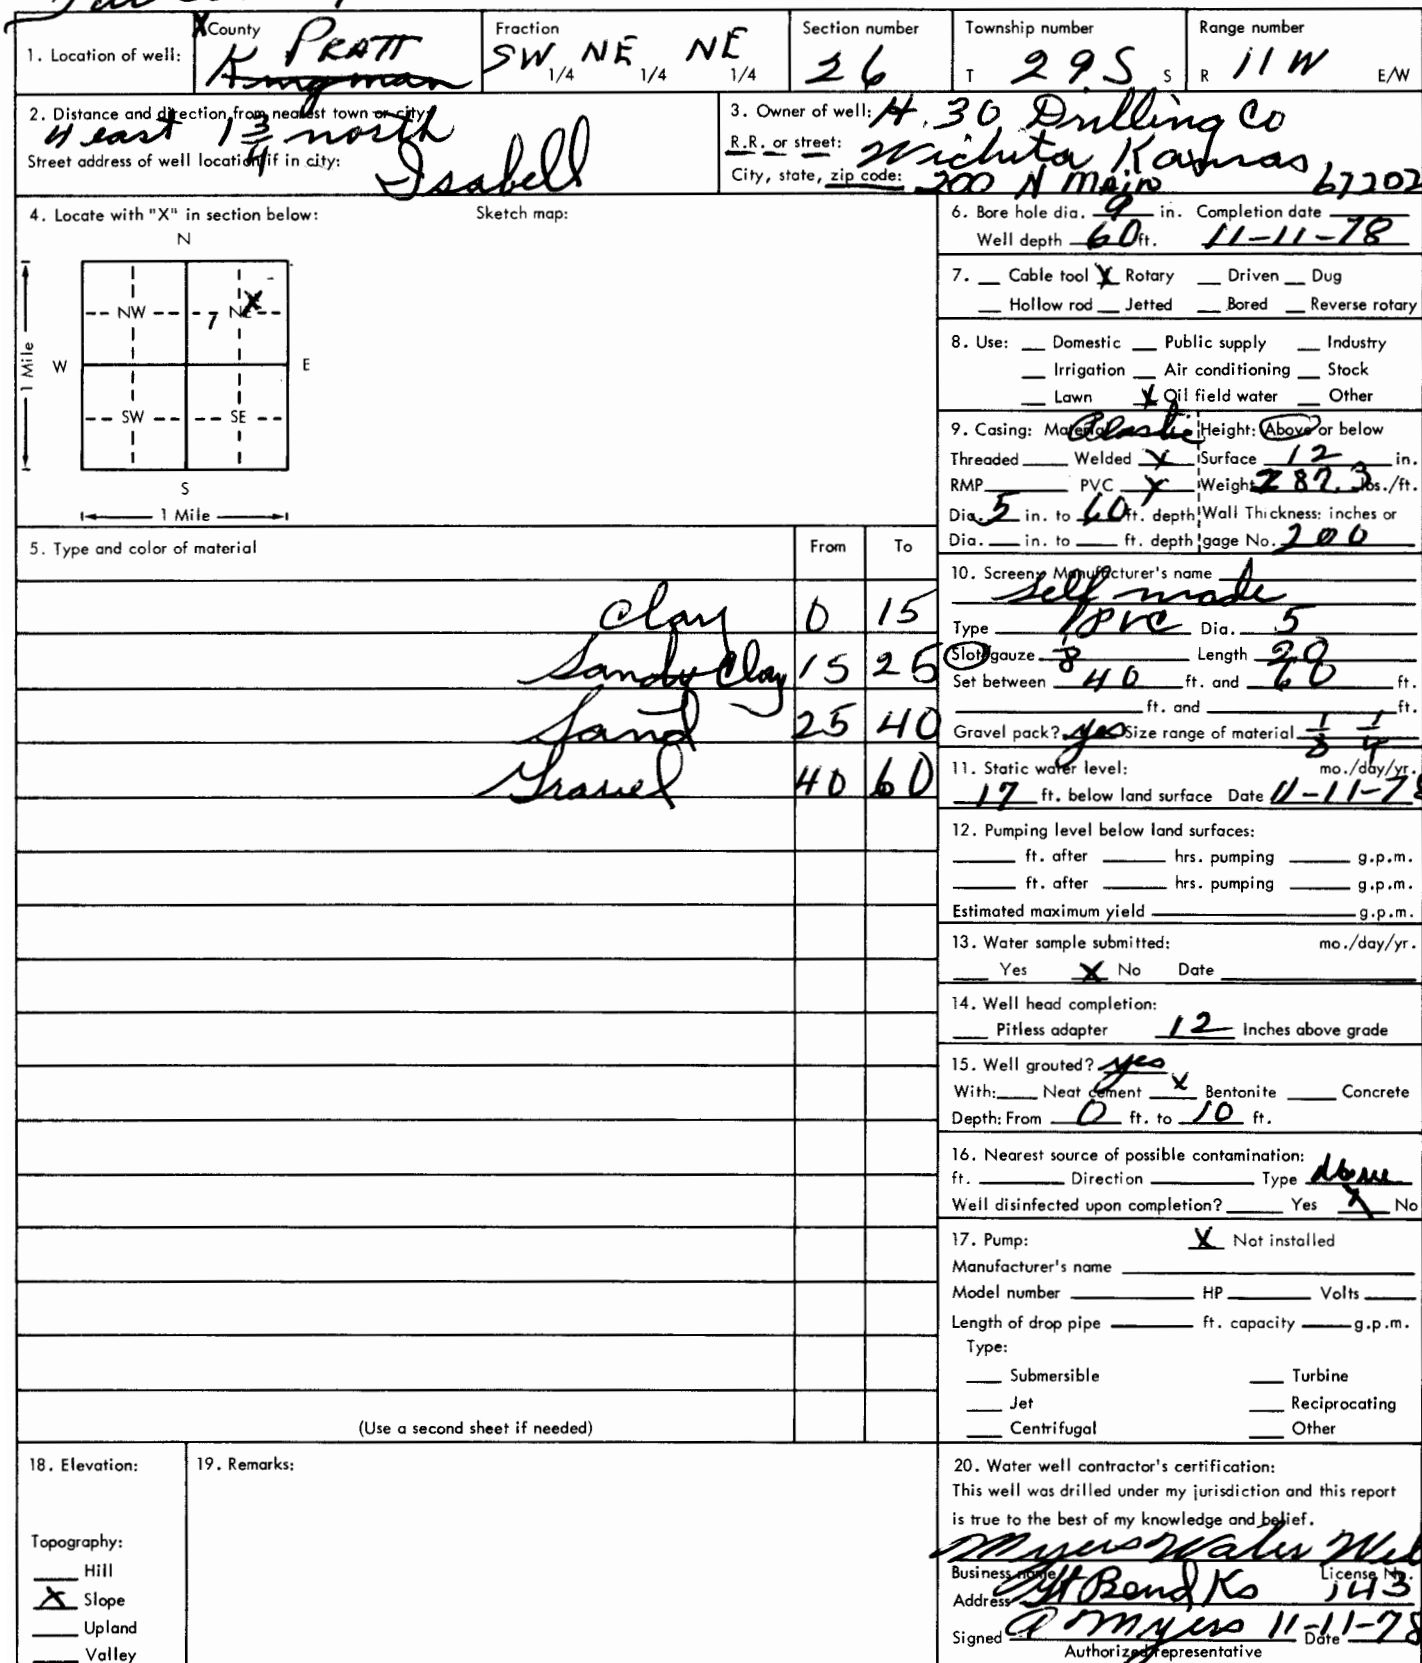 County Fraction Section number Township number Range number
1. Location of well: X PRATT Kingman SW 1/4 NE 1/4 NE 1/4 26 T 29S S R 11W E/W
2. Distance and direction from nearest town or city: 4 east 1 3/4 north
Street address of well location if in city: Isabell
3. Owner of well: H. 30 Drilling Co
R.R. or street: Wichita Kansas
City, state, zip code: 200 N Main 67202
4. Locate with "X" in section below: Sketch map:
N
NW 7 NE X
W E
1 Mile
SW SE
S
1 Mile
5. Type and color of material From To
Clay 0 15
Sandy Clay 15 25
Sand 25 40
Gravel 40 60
(Use a second sheet if needed)
6. Bore hole dia. 9 in. Completion date
Well depth 60 ft. 11-11-78
7. Cable tool X Rotary Driven Dug
Hollow rod Jetted Bored Reverse rotary
8. Use: Domestic Public supply Industry
Irrigation Air conditioning Stock
Lawn X Oil field water Other
9. Casing: Material Plastic Height: Above or below
Threaded Welded X Surface 12 in.
RMP PVC X Weight 287.3 lbs./ft.
Dia. 5 in. to 60 ft. depth Wall Thickness: inches or
Dia. in. to ft. depth gage No. 200
10. Screen: Manufacturer's name
self made
Type PVC Dia. 5
Slot/gauze 1/8 Length 20
Set between 40 ft. and 60 ft.
ft. and ft.
Gravel pack? yes Size range of material 1/8 1/4
11. Static water level: mo./day/yr.
17 ft. below land surface Date 11-11-78
12. Pumping level below land surfaces:
ft. after hrs. pumping g.p.m.
ft. after hrs. pumping g.p.m.
Estimated maximum yield g.p.m.
13. Water sample submitted: mo./day/yr.
Yes X No Date
14. Well head completion:
Pitless adapter 12 Inches above grade
15. Well grouted? yes
With: Neat cement X Bentonite Concrete
Depth: From 0 ft. to 10 ft.
16. Nearest source of possible contamination:
ft. Direction Type None
Well disinfected upon completion? Yes X No
17. Pump: X Not installed
Manufacturer's name
Model number HP Volts
Length of drop pipe ft. capacity g.p.m.
Type:
Submersible Turbine
Jet Reciprocating
Centrifugal Other
18. Elevation:
Topography:
Hill
X Slope
Upland
Valley
19. Remarks:
20. Water well contractor's certification:
This well was drilled under my jurisdiction and this report
is true to the best of my knowledge and belief.
Myers Water Wel
Business name License No.
Address Gt Bend Ks 143
Signed A Myers 11-11-78 Date
Authorized representative